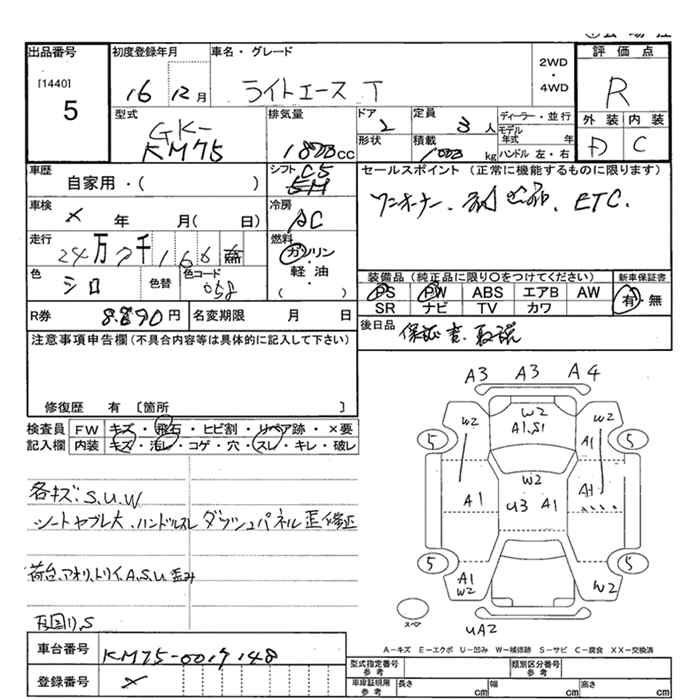 出品番号
[1440]
5
初度登録年月
16 12月
車名・グレード
ライトエース T
2WD
・
4WD
評価点
R
外装 内装
D C
型式
GK-
KM75
排気量
1800cc
ドア
2
形状
定員
3人
積載
1000kg
ディーラー・並行
モデル
年式 年
ハンドル 左・右
車歴
自家用・( )
シフト C5
冷房
AC
車検
× 年 月( 日)
走行
24万7千166
燃料
ガソリン
軽油
( )
色
シロ
色替
色コード
058
R券
8.890円
名変期限 月 日
セールスポイント (正常に機能するものに限ります)
ワンオーナー. ETC.
装備品(純正品に限り○をつけてください)
新車保証書
PS PW ABS エアB AW
SR ナビ TV カワ
有・無
後日品
保証書. 取説
注意事項申告欄(不具合内容は具体的に記入して下さい)
修復歴 有 〔箇所 〕
検査員 FW キズ・飛石・ヒビ割・リペア跡・×要
記入欄 内装 キズ・汚レ・コゲ・穴・スレ・キレ・破レ
各キズ:S.U.W
シートヤブレ大.ハンドルスレ ダッシュパネル歪修正
荷台.アオリ.トリイ.A.S.U歪み
下回り.S
A3 A3 A4
W2
A1.S1
W2 W2
A1
5 5
W2
A1 U3 A1 A1
5 5
A1
W2 W2
スペア
UA2
A-キズ E-エクボ U-凹み W-補修跡 S-サビ C-腐食 XX-交換済
車台番号
KM75-0019148
登録番号
×
型式指定番号
参考
類別区分番号
参考
車庫証明用
参考
長さ cm 幅 cm 高さ cm